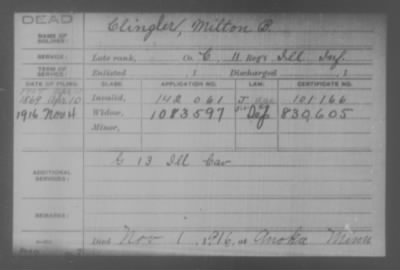 DEAD
NAME OF SOLDIER: Clingler, Milton B.
SERVICE: Late rank, Co. C, 11 Reg't Ill Inf.
TERM OF SERVICE: Enlisted , 1 Discharged , 1
DATE OF FILING. CLASS. APPLICATION NO. LAW. CERTIFICATE NO.
1869 Apr 10 Invalid, 142 061 101 166
1916 Nov 4 Widow, 1083597 830,605
Minor,
ADDITIONAL SERVICES: G 13 Ill Cav
REMARKS:
Died Nov 1, 1916, at Anoka Minn